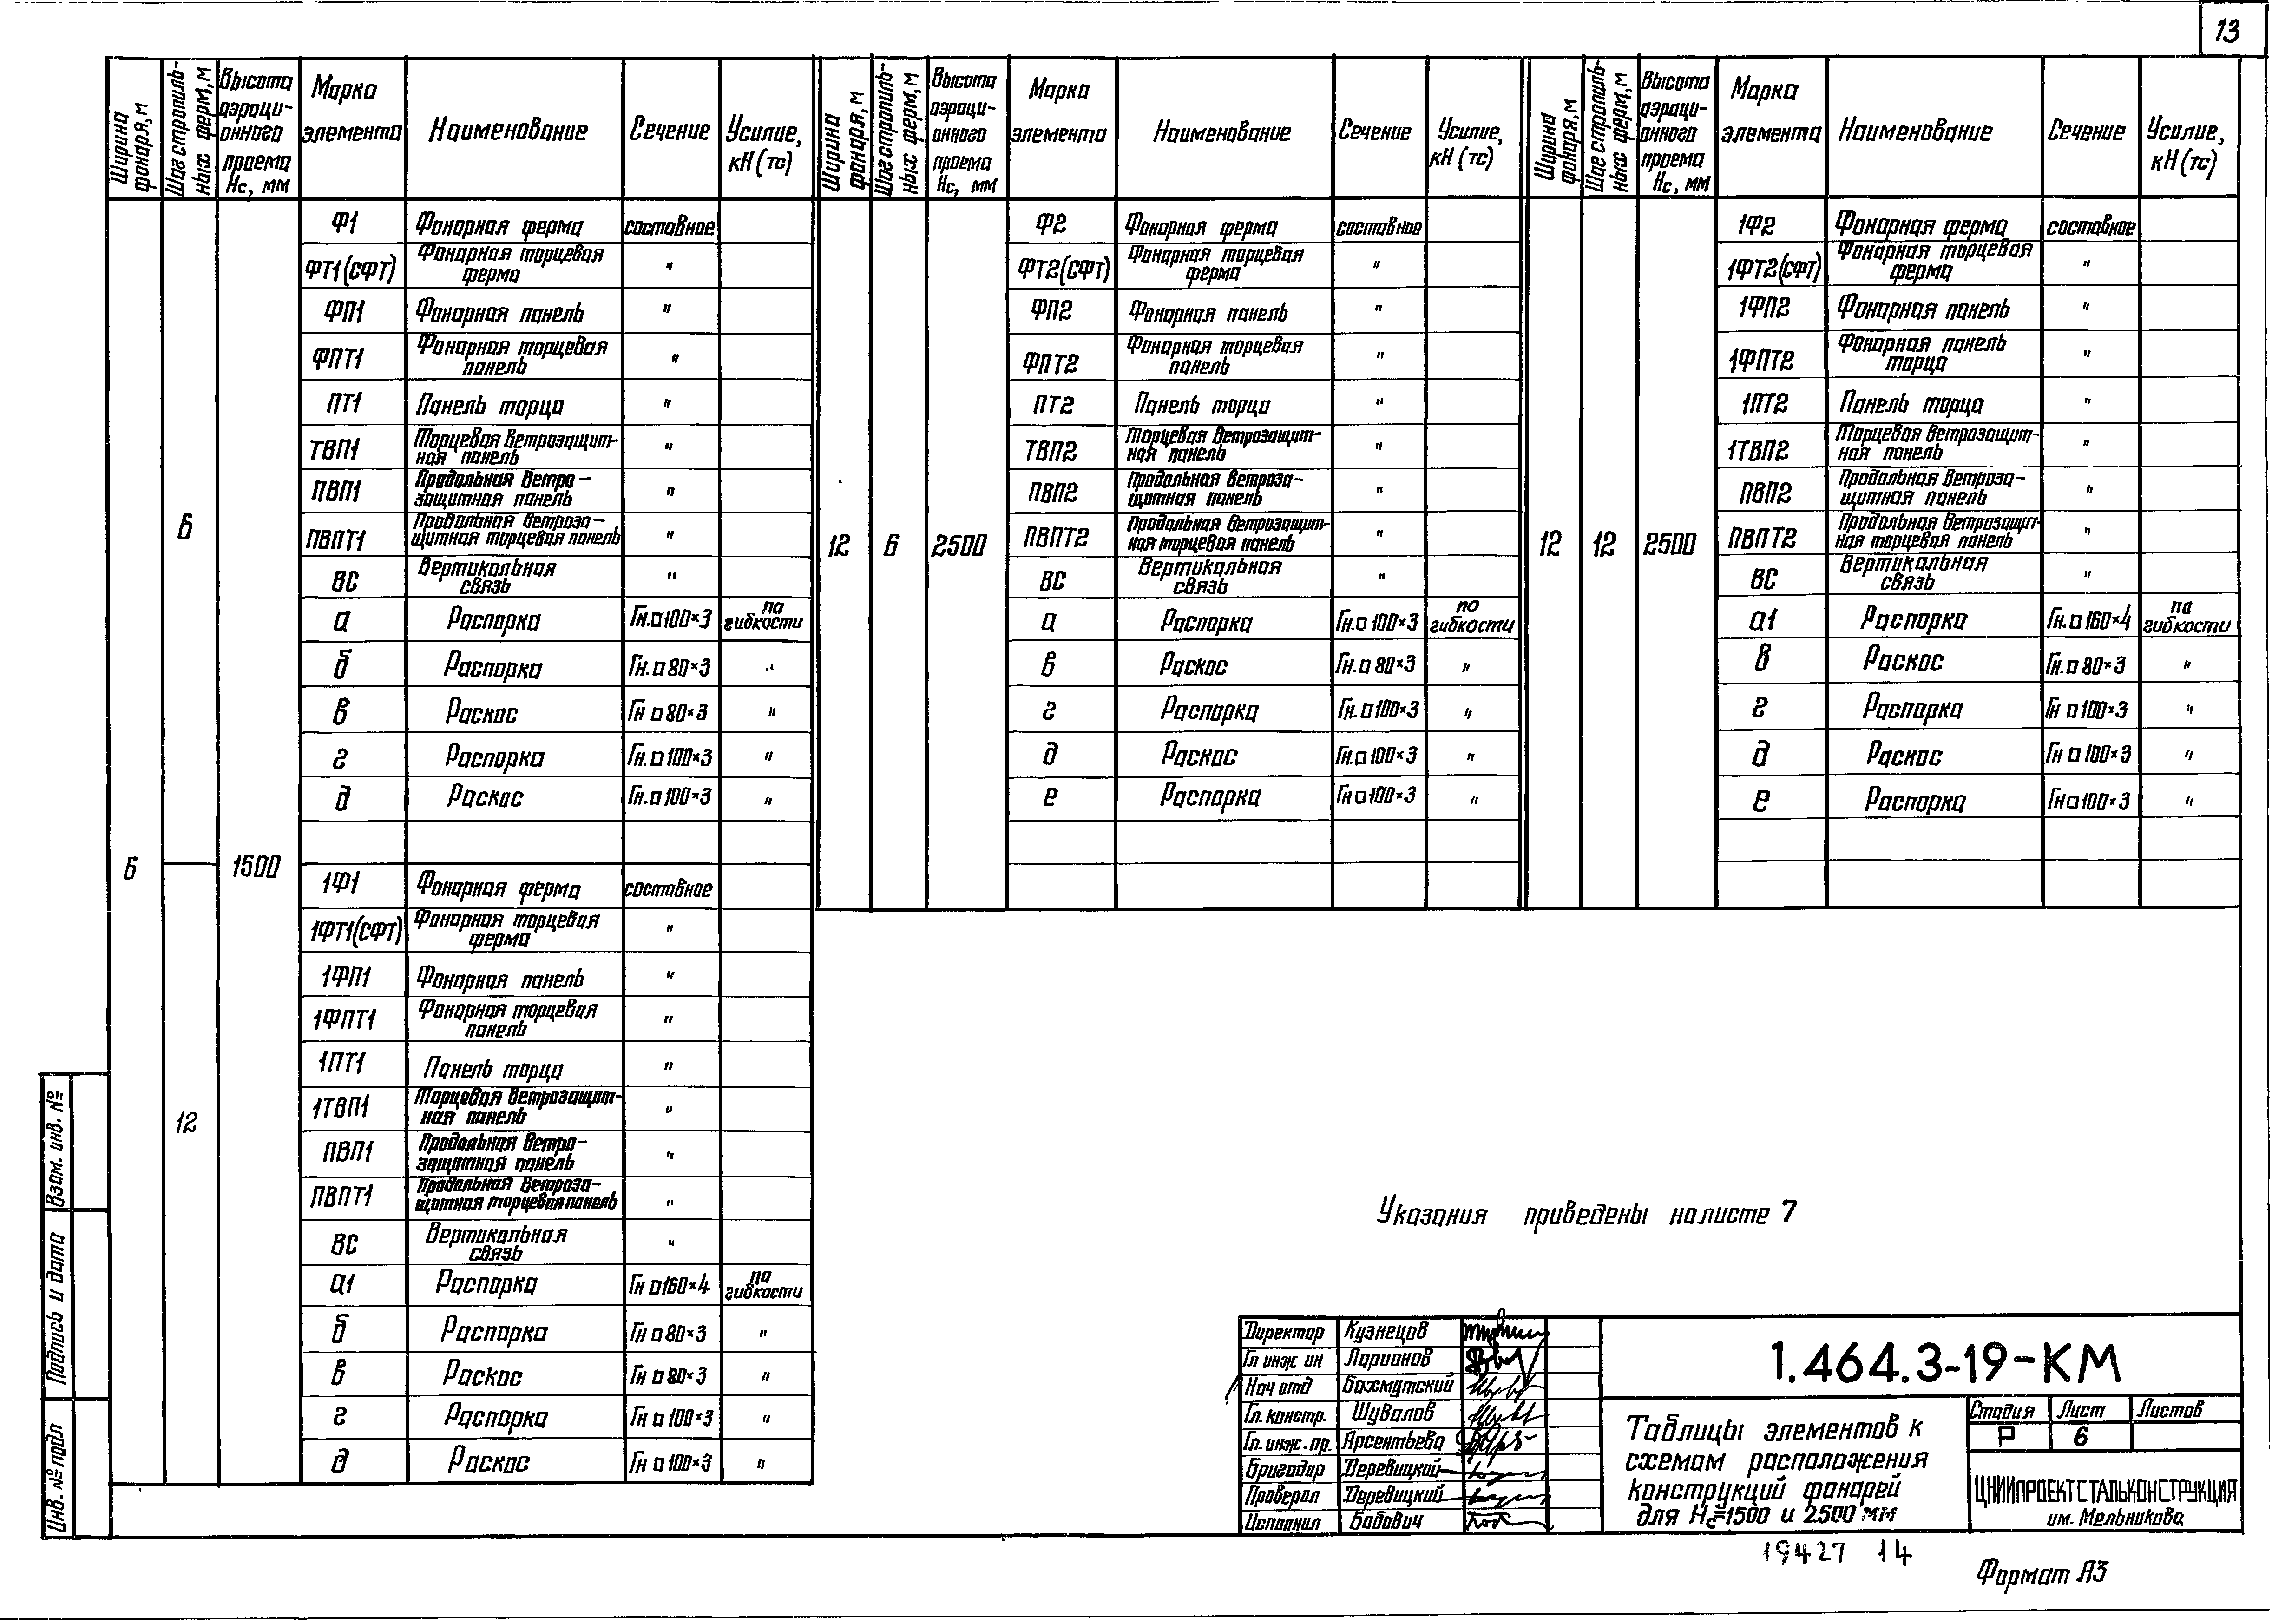 13
Ширина фонаря, м
Шаг стропиль-ных ферм, м
Высота аэраци-онного проема Нс, мм
Марка элемента
Наименование
Сечение
Усилие, кН (тс)
6
6
1500
Ф1 Фонарная ферма составное
ФТ1(СФТ) Фонарная торцевая ферма "
ФП1 Фонарная панель "
ФПТ1 Фонарная торцевая панель "
ПТ1 Панель торца "
ТВП1 Торцевая ветрозащит-ная панель "
ПВП1 Продольная ветро-защитная панель "
ПВПТ1 Продольная ветроза-щитная торцевая панель "
ВС Вертикальная связь "
а Распорка Гн.□100×3 по гибкости
б Распорка Гн.□80×3 "
в Раскос Гн □80×3 "
г Распорка Гн.□100×3 "
д Раскос Гн.□100×3 "
12
1Ф1 Фонарная ферма составное
1ФТ1(СФТ) Фонарная торцевая ферма "
1ФП1 Фонарная панель "
1ФПТ1 Фонарная торцевая панель "
1ПТ1 Панель торца "
1ТВП1 Торцевая ветрозащит-ная панель "
ПВП1 Продольная ветро-защитная панель "
ПВПТ1 Продольная ветроза-щитная торцевая панель "
ВС Вертикальная связь "
а1 Распорка Гн □160×4 по гибкости
б Распорка Гн □80×3 "
в Раскос Гн □80×3 "
г Распорка Гн □100×3 "
д Раскос Гн □100×3 "
Ширина фонаря, м
Шаг стропиль-ных ферм, м
Высота аэраци-онного проема Нс, мм
Марка элемента
Наименование
Сечение
Усилие, кН (тс)
12
6
2500
Ф2 Фонарная ферма составное
ФТ2(СФТ) Фонарная торцевая ферма "
ФП2 Фонарная панель "
ФПТ2 Фонарная торцевая панель "
ПТ2 Панель торца "
ТВП2 Торцевая ветрозащит-ная панель "
ПВП2 Продольная ветроза-щитная панель "
ПВПТ2 Продольная ветрозащит-ная торцевая панель "
ВС Вертикальная связь "
а Распорка Гн.□100×3 по гибкости
в Раскос Гн.□80×3 "
г Распорка Гн.□100×3 "
д Раскос Гн.□100×3 "
е Распорка Гн□100×3 "
Ширина фонаря, м
Шаг стропиль-ных ферм, м
Высота аэраци-онного проема Нс, мм
Марка элемента
Наименование
Сечение
Усилие, кН (тс)
12
12
2500
1Ф2 Фонарная ферма составное
1ФТ2(СФТ) Фонарная торцевая ферма "
1ФП2 Фонарная панель "
1ФПТ2 Фонарная панель торца "
1ПТ2 Панель торца "
1ТВП2 Торцевая ветрозащит-ная панель "
ПВП2 Продольная ветроза-щитная панель "
ПВПТ2 Продольная ветрозащит-ная торцевая панель "
ВС Вертикальная связь "
а1 Распорка Гн.□160×4 по гибкости
в Раскос Гн.□80×3 "
г Распорка Гн □100×3 "
д Раскос Гн □100×3 "
е Распорка Гн□100×3 "
Указания приведены на листе 7
Взам. инв. №
Подпись и дата
Инв. № подл
Директор Кузнецов
Гл инж ин Ларионов
Нач отд Бахмутский
Гл. констр. Шувалов
Гл. инж. пр. Арсентьева
Бригадир Деревицкий
Проверил Деревицкий
Исполнил Бабович
1.464.3-19-КМ
Таблицы элементов к
схемам расположения
конструкций фонарей
для Нс=1500 и 2500 мм
Стадия Лист Листов
Р 6
ЦНИИПРОЕКТСТАЛЬКОНСТРУКЦИЯ
им. Мельникова
19427 14
Формат А3